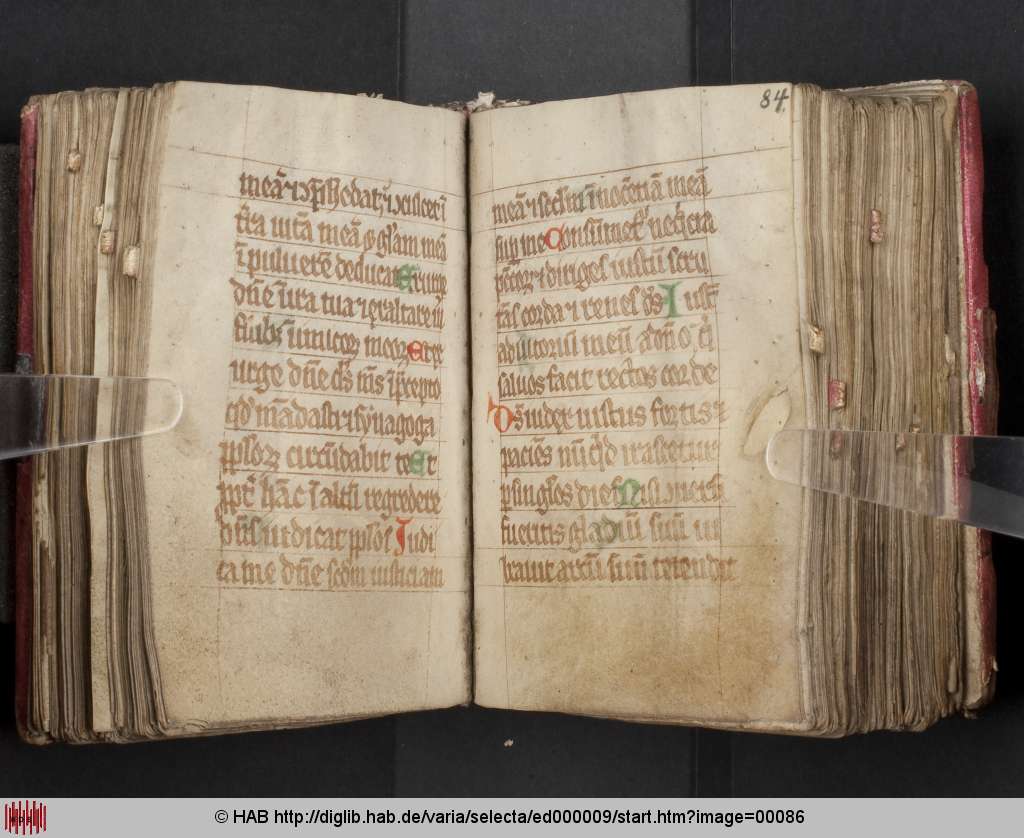 meā ⁊ ꝯp̄hēdat ⁊ ꝯculcet ī
t̄ra vitā meā ⁊ gl̄iam meā
ī puluerē deducat Exurge
dn̄e ī ira tua ⁊ exaltare in
finibꝫ inimicoꝝ meoꝝ Et ex
urge dn̄e ds̄ ms̄ ī p̄cepto
qđ mādasti ⁊ synagoga
pploꝝ circūdabit te Et
ppt̄ hāc ī altū regredere
dn̄s iudicat pplos Iudi
ca me dn̄e scd̄m iusticiam
84.
meā ⁊ scd̄m īnocētiā meā
suꝑ me Consūmet̄ neq̄cia
pctōꝝ ⁊ diriges iustū scru
tās corda ⁊ renes ds̄ Iustū
adiutoriū meū a dn̄o q̄
saluos facit rectos corde
Ds̄ iudex iustus fortis ⁊
paciēs nūqđ irascetur
ꝑ singl̄os dies Nisi ꝯuersi
fueritis gladiū suū ui
brauit arcū suū tetendit
© HAB http://diglib.hab.de/varia/selecta/ed000009/start.htm?image=00086